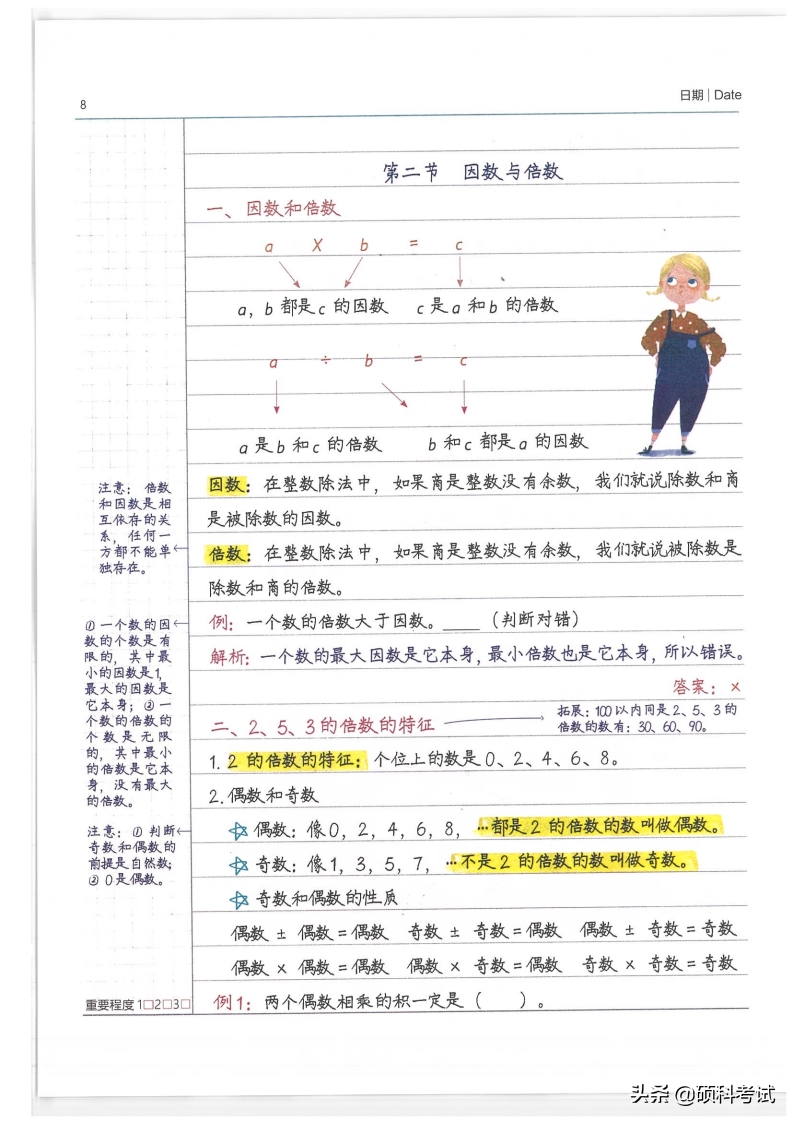 8
日期 | Date
第二节 因数与倍数
一、因数和倍数
a X b = c
a，b 都是c 的因数 c 是a 和b 的倍数
a ÷ b = c
a 是b 和c 的倍数 b 和c 都是a 的因数
因数：在整数除法中，如果商是整数没有余数，我们就说除数和商
是被除数的因数。
倍数：在整数除法中，如果商是整数没有余数，我们就说被除数是
除数和商的倍数。
注意：倍数
和因数是相
互依存的关
系，任何一
方都不能单
独存在。
例：一个数的倍数大于因数。____（判断对错）
解析：一个数的最大因数是它本身，最小倍数也是它本身，所以错误。
答案：×
①一个数的因
数的个数是有
限的，其中最
小的因数是1，
最大的因数是
它本身；②一
个数的倍数的
个数是无限
的，其中最小
的倍数是它本
身，没有最大
的倍数。
二、2、5、3的倍数的特征
拓展：100以内同是2、5、3的
倍数的数有：30、60、90。
1. 2 的倍数的特征：个位上的数是0、2、4、6、8。
2.偶数和奇数
偶数：像0，2，4，6，8，…都是2 的倍数的数叫做偶数。
奇数：像1，3，5，7，…不是2 的倍数的数叫做奇数。
注意：①判断
奇数和偶数的
前提是自然数；
②0是偶数。
奇数和偶数的性质
偶数 ± 偶数＝偶数 奇数 ± 奇数＝偶数 偶数 ± 奇数＝奇数
偶数 × 偶数＝偶数 偶数 × 奇数＝偶数 奇数 × 奇数＝奇数
例1：两个偶数相乘的积一定是（ ）。
重要程度 1□2□3□
头条 @硕科考试